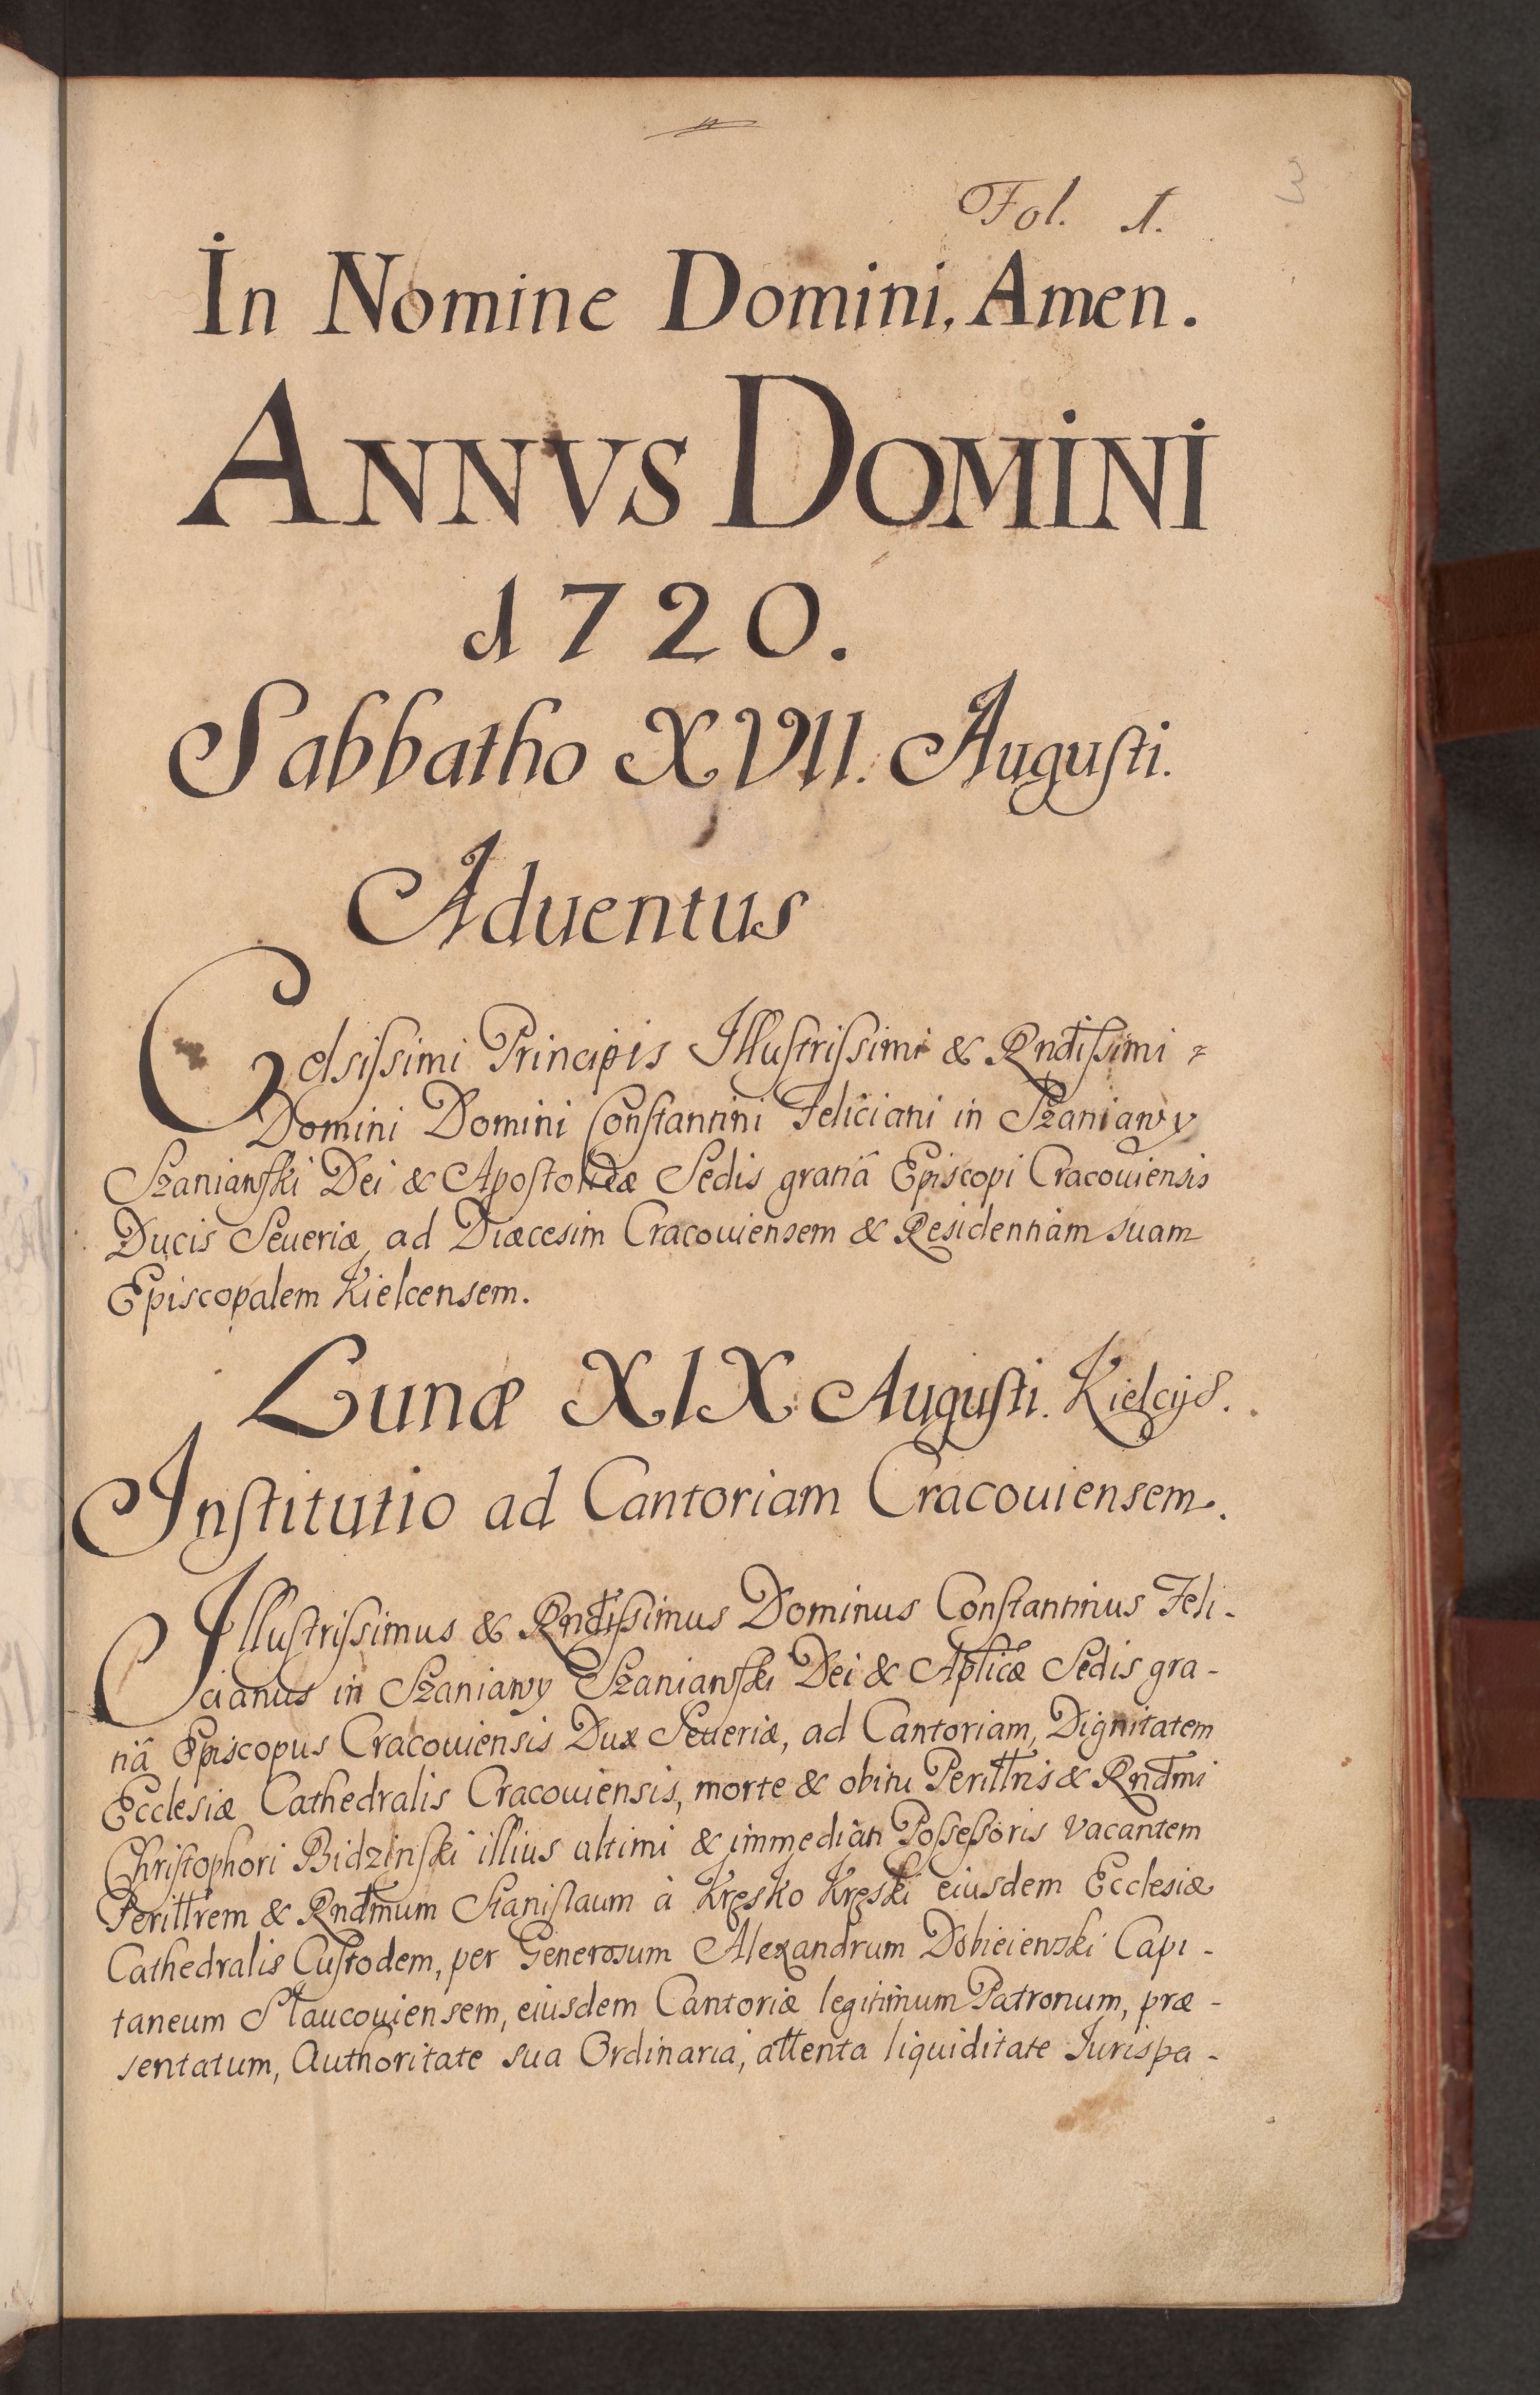 Fol. 1.
3
In Nomine Domini, Amen.
ANNVS DOMINI
1720.
Sabbatho XVII. Augusti.
Aduentus
Celsissimi Principis Illustrissimi & Rndissimi
Domini Domini Constantini Feliciani in Szaniawy
Szaniawski Dei & Apostolicæ Sedis gratiâ Episcopi Cracouiensis
Ducis Seueriæ, ad Diæcesim Cracouiensem & Residentiam suam
Episcopalem Kielcensem.
Lunæ XIX Augusti. Kielcijs.
Institutio ad Cantoriam Cracouiensem.
Illustrissimus & Rndissimus Dominus Constantinus Feli-
cianus in Szaniawy Szaniawski Dei & Aplicæ Sedis gra-
tiâ Episcopus Cracouiensis Dux Seueriæ, ad Cantoriam, Dignitatem
Ecclesiæ Cathedralis Cracouiensis, morte & obitu Perilltris & Rndmi
Christophori Bidzinski illius ultimi & immediati Possessoris vacantem
Perilltrem & Rndmum Stanislaum à Kręsko Kręski eiusdem Ecclesiæ
Cathedralis Custodem, per Generosum Alexandrum Dobieienski Capi-
taneum Slaucouiensem, eiusdem Cantoriæ legitimum Patronum, præ-
sentatum, Authoritate sua Ordinaria, attenta liquiditate Iurispa-